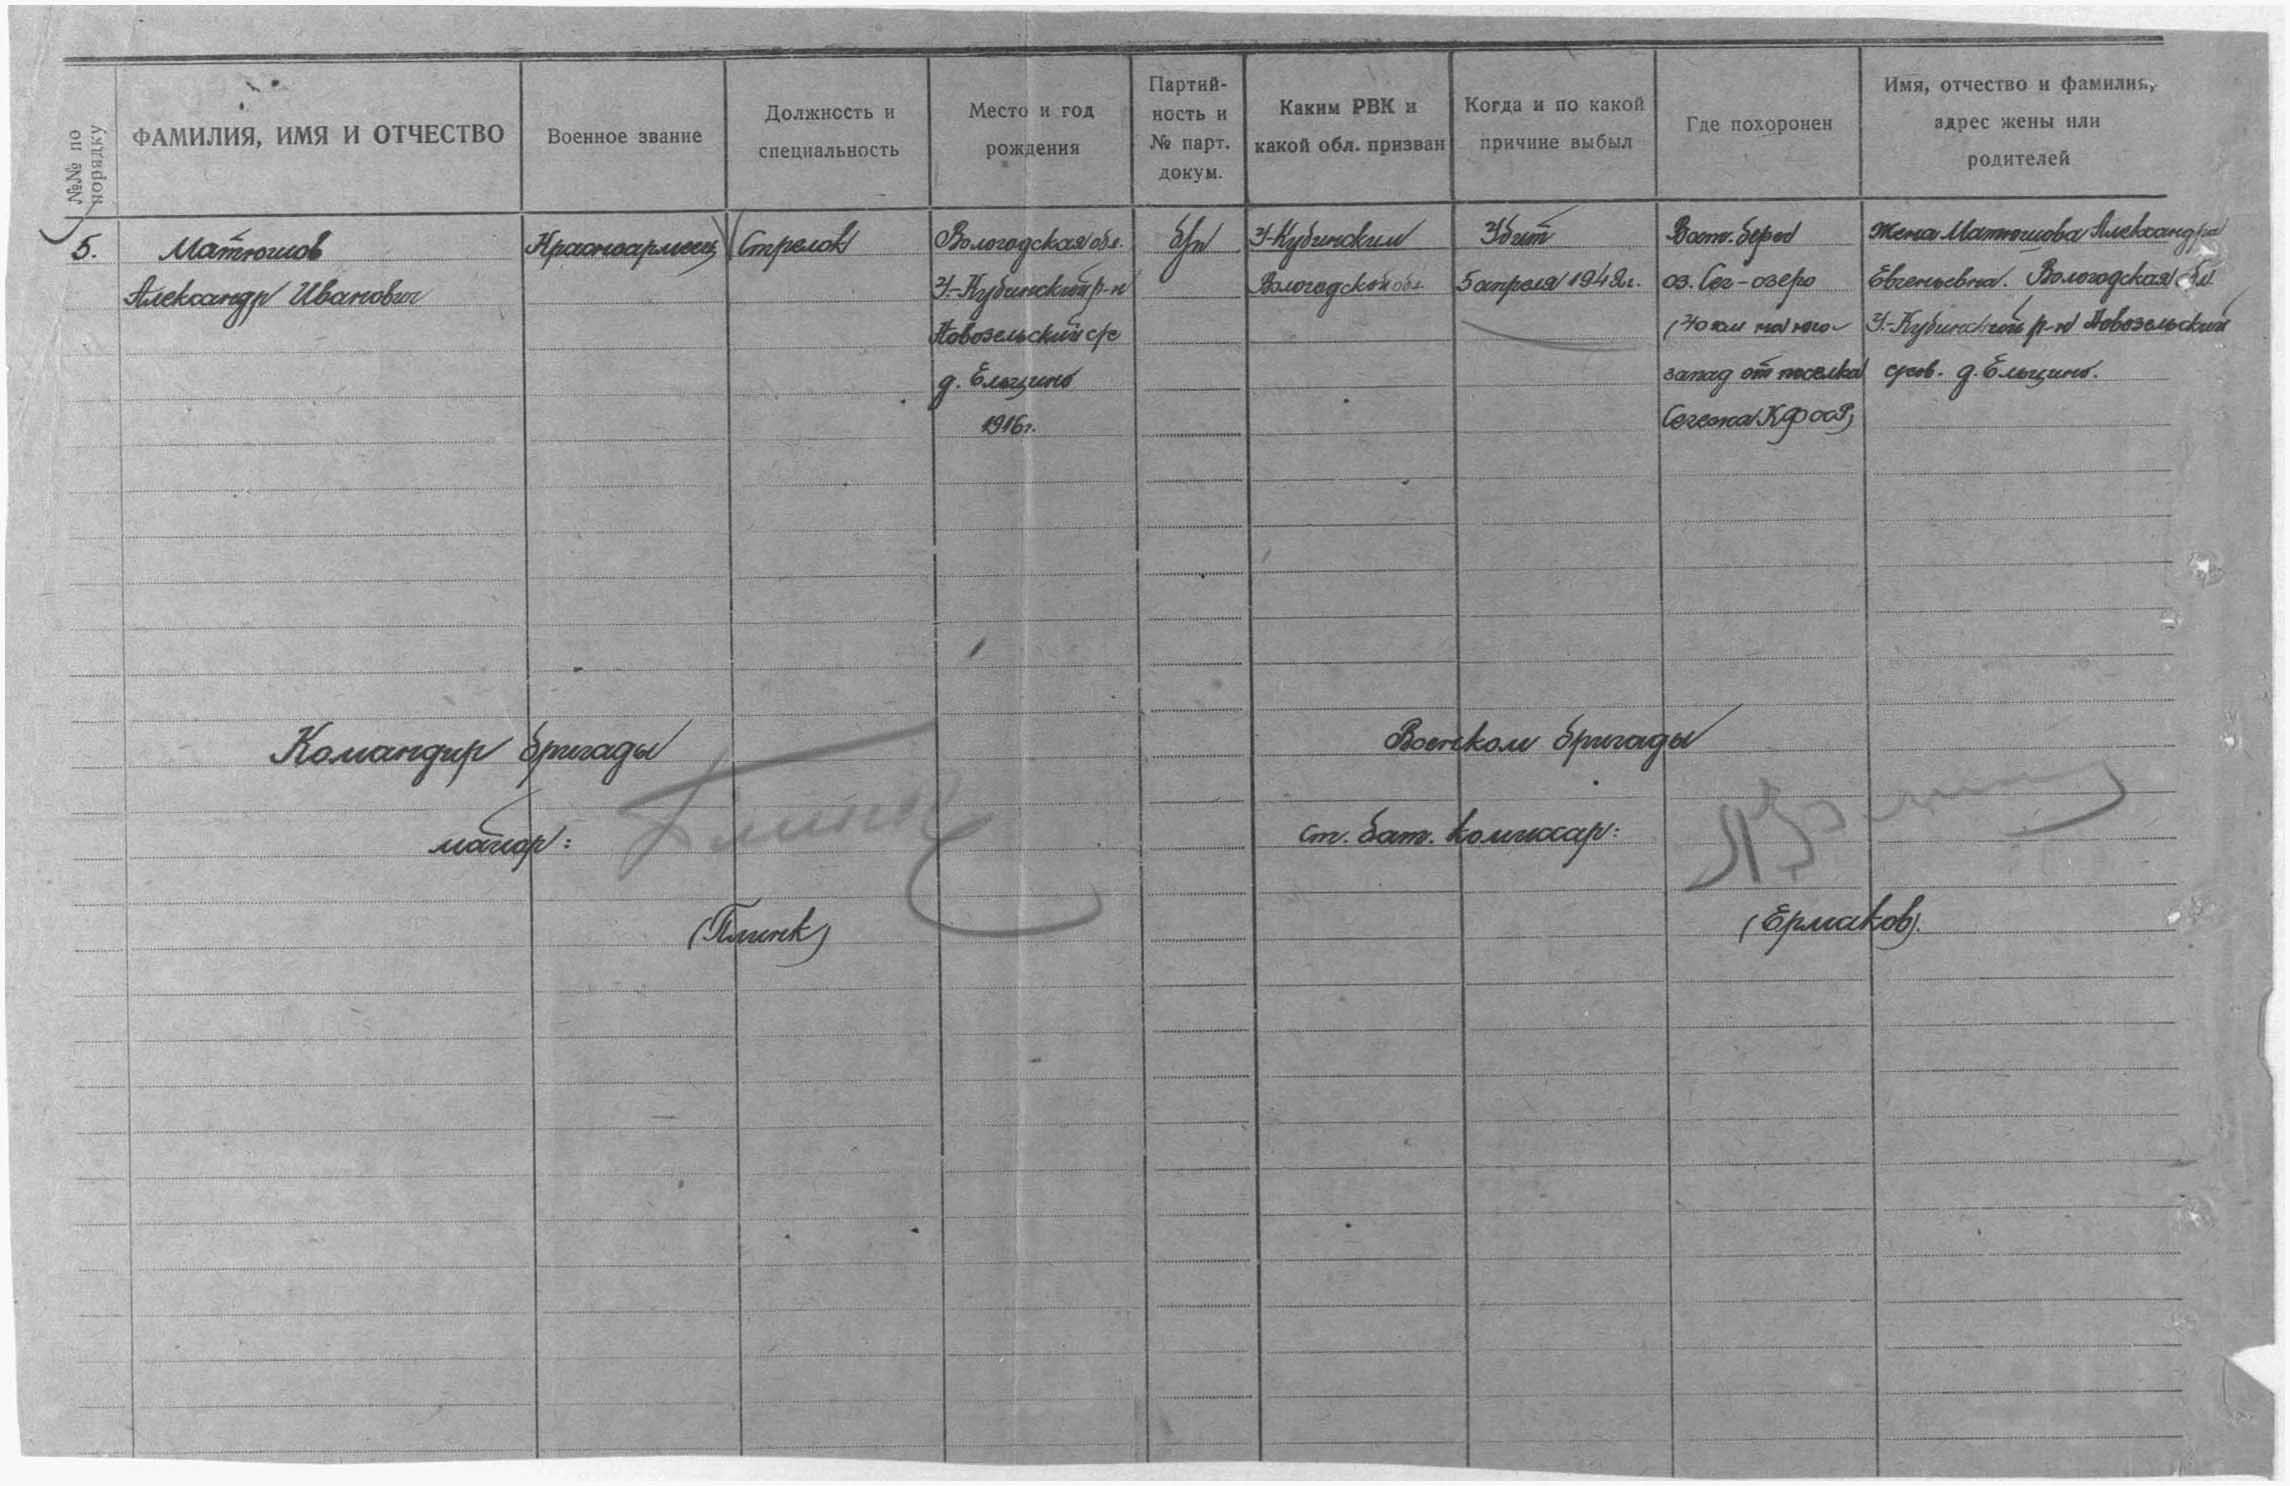 №№ по порядку
ФАМИЛИЯ, ИМЯ И ОТЧЕСТВО
Военное звание
Должность и
специальность
Место и год
рождения
Партий-
ность и
№ парт.
докум.
Каким РВК и
какой обл. призван
Когда и по какой
причине выбыл
Где похоронен
Имя, отчество и фамилия,
адрес жены или
родителей
5.
Матюшов
Александр Иванович
Красноармеец
Стрелок
Вологодская обл.
У.-Кубинский р-н
Новосельский с/с
д. Ельцино
1916г.
б/п
У-Кубинским
Вологодской обл.
Убит
5 апреля 1942г.
Вост. берег
оз. Сег-озеро
(40 км на юго-
запад от поселка
Сегежа КФССР)
Жена Матюшова Александра
Евгеньевна. Вологодская обл.
У.-Кубинский р-н Новосельский
сов. д. Ельцино.
Командир бригады
майор:
(Плинк)
Военком бригады
ст. бат. комиссар:
(Ермаков).